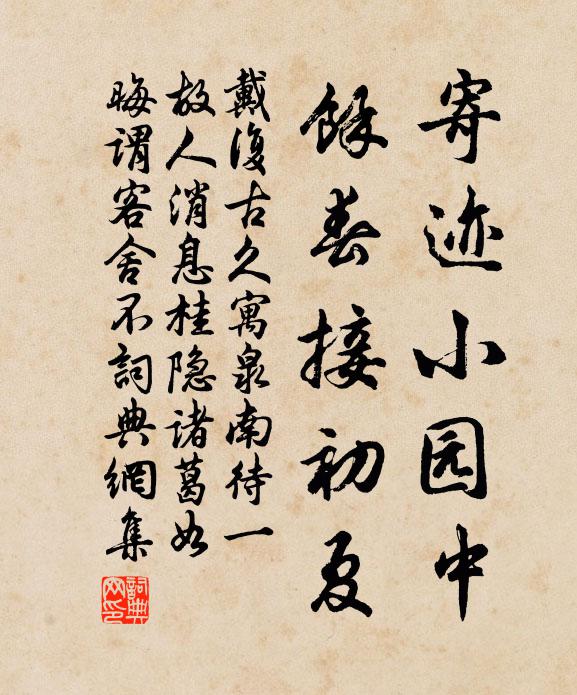 寄迹小园中
餘春接初夏
戴復古久寓泉南待一
故人消息桂隐诸葛如
晦谓客舍不詞典網集
詞典網印